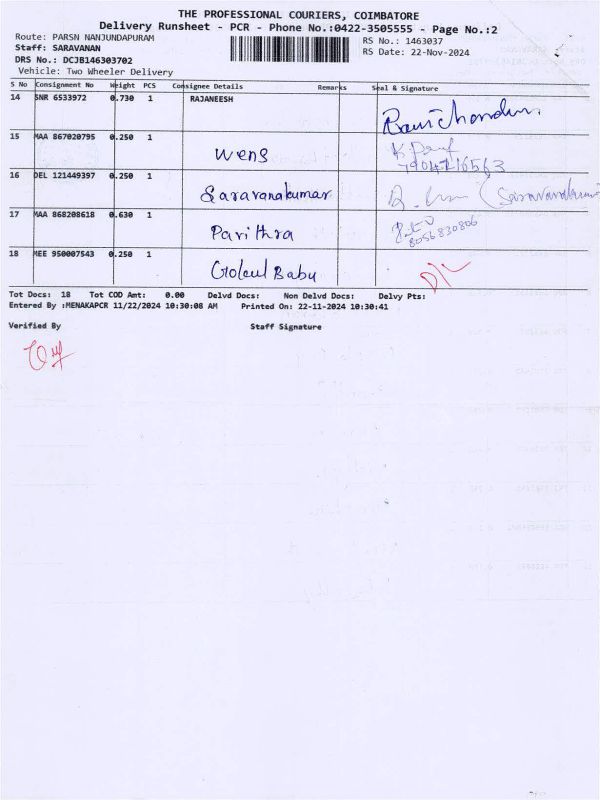 THE PROFESSIONAL COURIERS, COIMBATORE
Delivery Runsheet - PCR - Phone No.:0422-3505555 - Page No.:2
Route: PARSN NANJUNDAPURAM
RS No.: 1463037
Staff: SARAVANAN
RS Date: 22-Nov-2024
DRS No.: DCJB146303702
Vehicle: Two Wheeler Delivery
S No Consignment No Weight PCS Consignee Details Remarks Seal & Signature
14 SNR 6533972 0.730 1 RAJANEESH
15 MAA 867020795 0.250 1
Wens
16 DEL 121449397 0.250 1
Saravanakumar
17 MAA 868208618 0.630 1
Parithra
8056830806
18 MEE 950007543 0.250 1
Gokul Babu
D/L
Tot Docs: 18 Tot COD Amt: 0.00 Delvd Docs: Non Delvd Docs: Delvy Pts:
Entered By :MENAKAPCR 11/22/2024 10:30:08 AM Printed On: 22-11-2024 10:30:41
Verified By Staff Signature